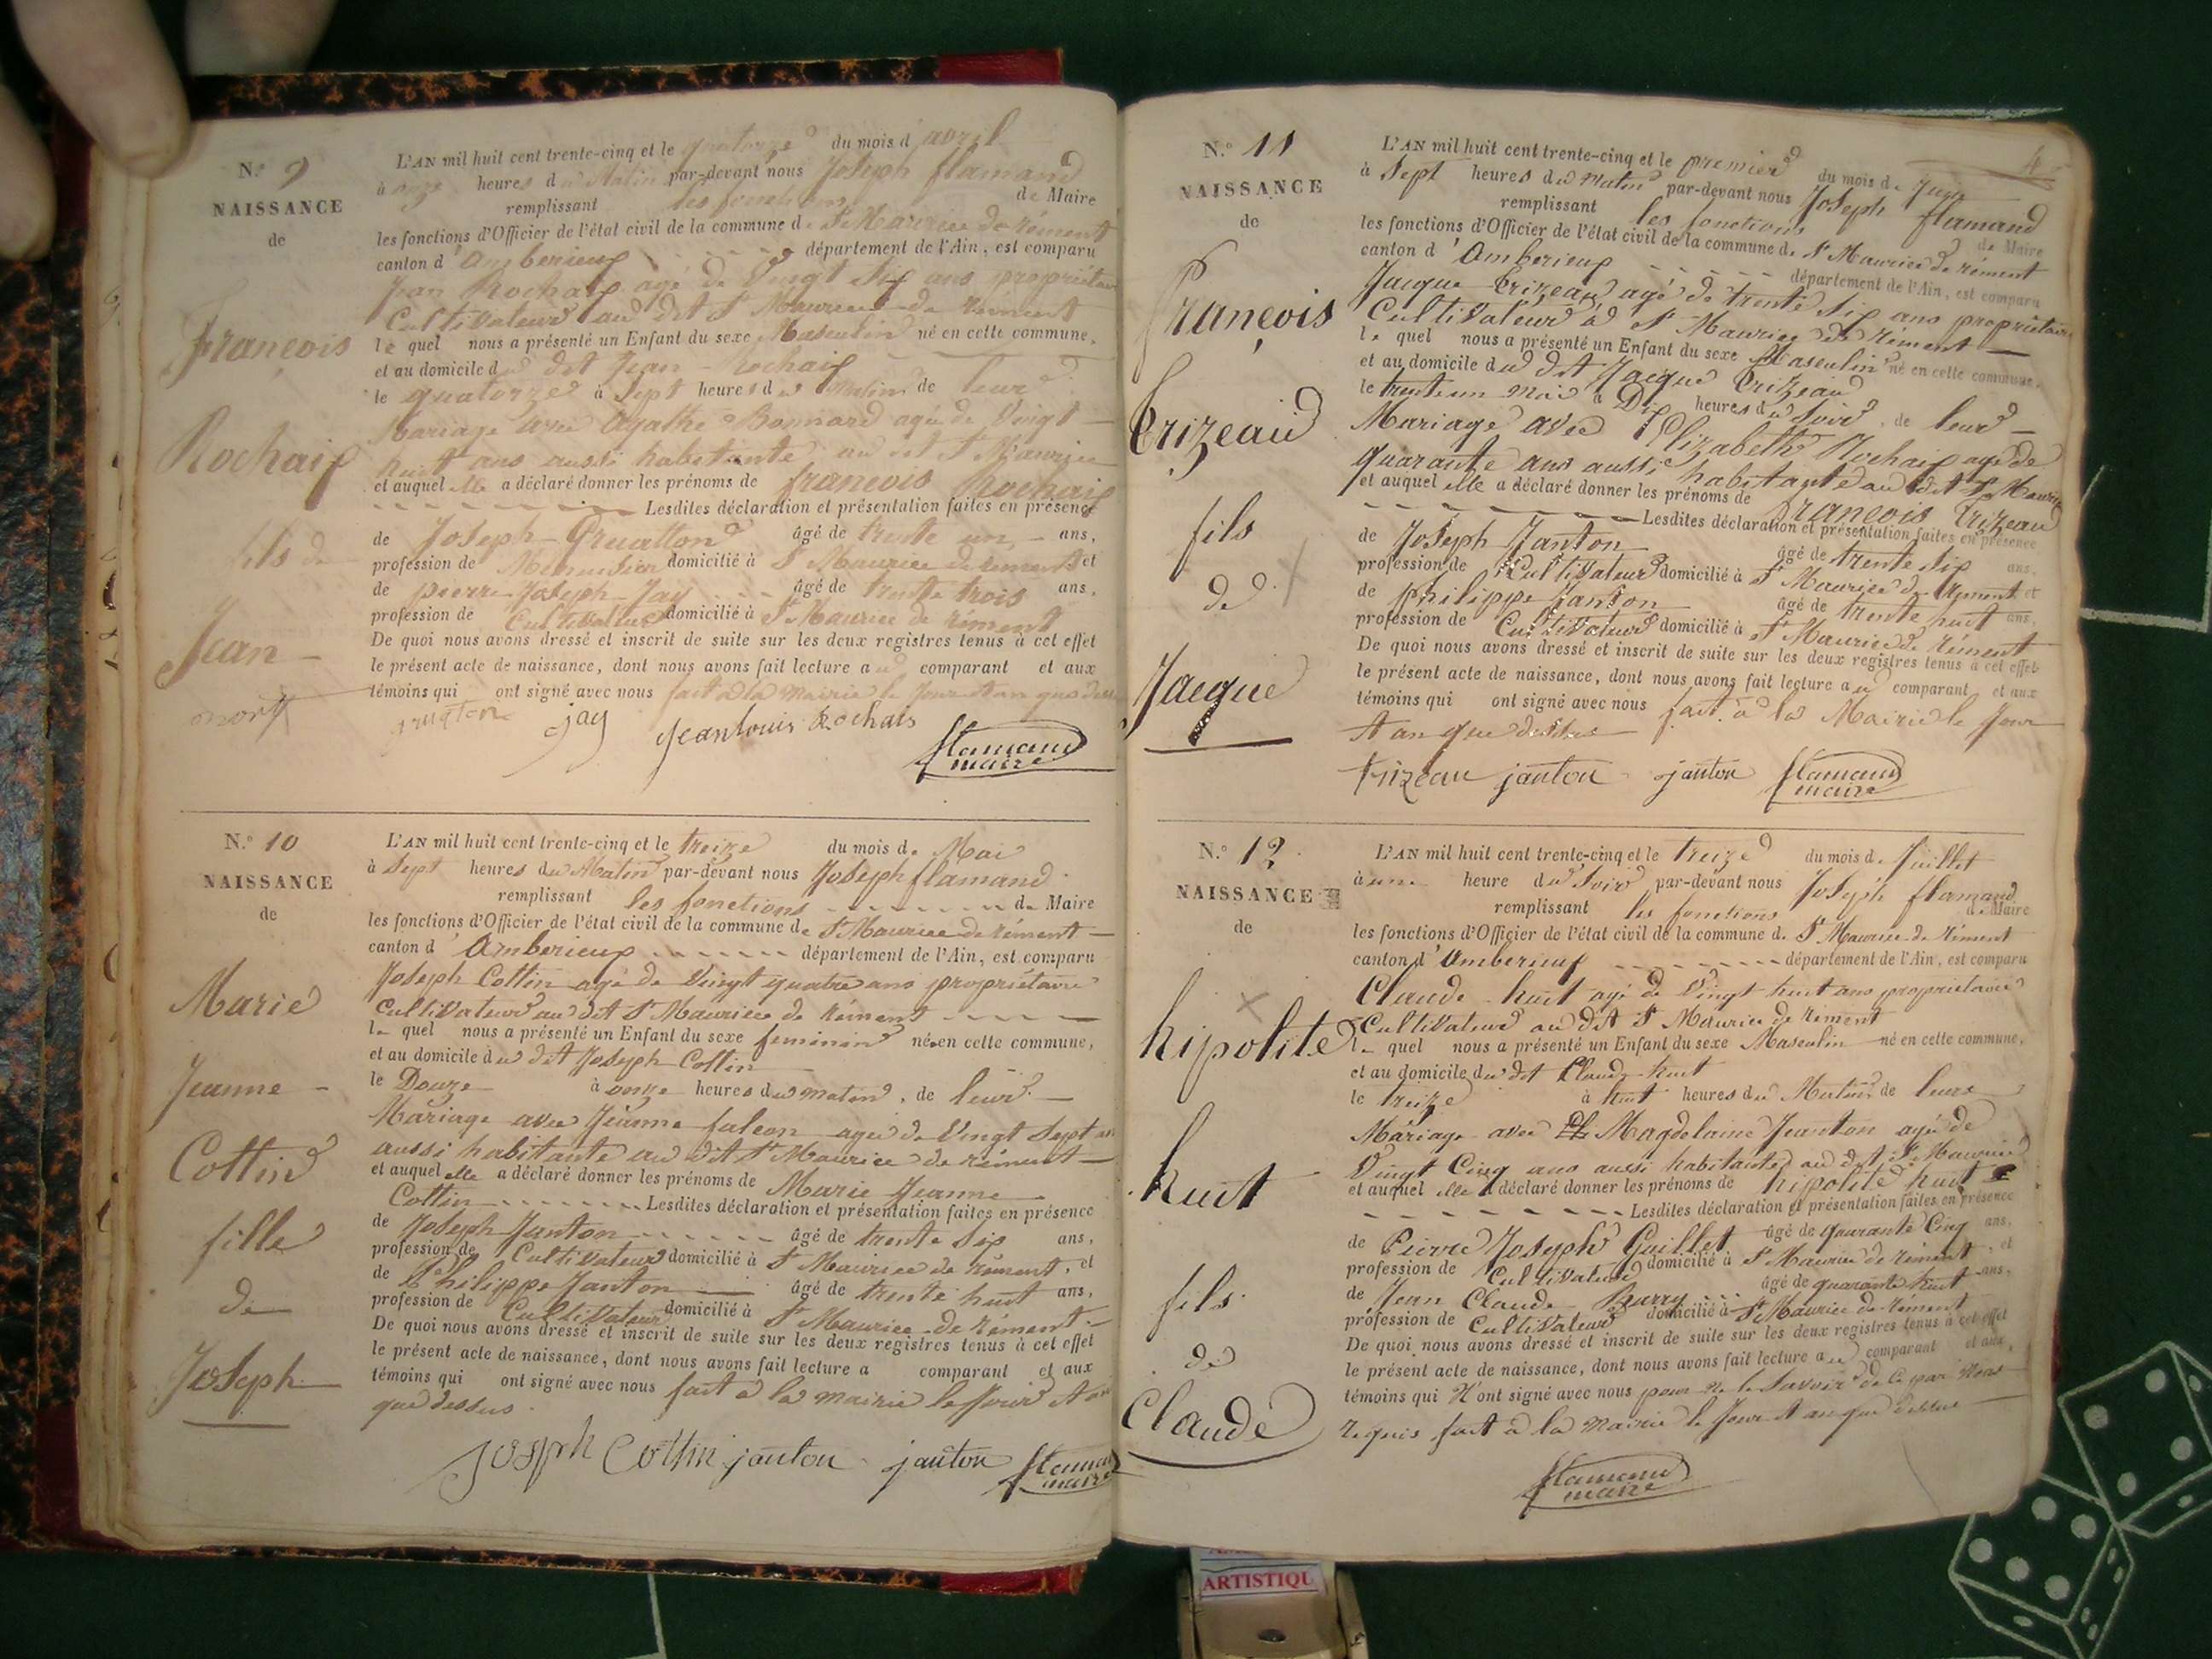 N.o 9
NAISSANCE
de
François
Rochaix
fils de
Jean
mort
L'AN mil huit cent trente-cinq et le quatorze du mois d avril
à onze heures du Matin par-devant nous Joseph flamand
remplissant les fonctions de Maire
les fonctions d'Officier de l'état civil de la commune de St Maurice de rément
canton d'Amberieux département de l'Ain, est comparu
Jean Rochaix agé de Vingt Six ans propriétaire
Cultivateur au dit St Maurice de rément
le quel nous a présenté un Enfant du sexe Masculin né en cette commune,
et au domicile du dit Jean Rochaix
le quatorze à Sept heures du matin de leur
Mariage avec Agathe Bonnard agée de Vingt
huit ans aussi habitante au dit St Maurice
et auquel elle a déclaré donner les prénoms de francois Rochaix
Lesdites déclaration et présentation faites en présence
de Joseph Gruatton âgé de trente un ans,
profession de Menuisier domicilié à St Maurice de rément et
de pierre Joseph Jay âgé de trente trois ans,
profession de Cultivateur domicilié à St Maurice de rément
De quoi nous avons dressé et inscrit de suite sur les deux registres tenus à cet effet
le présent acte de naissance, dont nous avons fait lecture au comparant et aux
témoins qui ont signé avec nous fait à la mairie le Jour et an que dessus
jay Jean louis Rochais flamand
maire
N.o 10
NAISSANCE
de
Marie
Jeanne
Cottin
fille
de
Joseph
L'AN mil huit cent trente-cinq et le treize du mois de Mai
à Sept heures du Matin par-devant nous Joseph flamand
remplissant les fonctions de Maire
les fonctions d'Officier de l'état civil de la commune de St Maurice de rément
canton d'Amberieux département de l'Ain, est comparu
Joseph Cottin agé de Vingt quatre ans propriétaire
Cultivateur au dit St Maurice de rément
le quel nous a présenté un Enfant du sexe feminin né en cette commune,
et au domicile du dit Joseph Cottin
le Douze à onze heures du matin, de leur
Mariage avec Jeanne falcon agée de Vingt Sept an
aussi habitante au dit St Maurice de rément
et auquel elle a déclaré donner les prénoms de Marie Jeanne
Cottin Lesdites déclaration et présentation faites en présence
de Joseph Janton âgé de trente Six ans,
profession de Cultivateur domicilié à St Maurice de rément, et
de Philippe Janton âgé de trente huit ans,
profession de Cultivateur domicilié à St Maurice de rément
De quoi nous avons dressé et inscrit de suite sur les deux registres tenus à cet effet
le présent acte de naissance, dont nous avons fait lecture a comparant et aux
témoins qui ont signé avec nous fait à la mairie le Jour et an
que dessus
Joseph Cottin janton janton flamand
maire
4
N.o 11
NAISSANCE
de
François
Trizeau
fils
de
Jacque
L'AN mil huit cent trente-cinq et le premier du mois de Juin
à Sept heures du matin par-devant nous Joseph flamand
remplissant les fonctions de Maire
les fonctions d'Officier de l'état civil de la commune de St Maurice de rément
canton d'Amberieux département de l'Ain, est comparu
Jacque Trizeau agé de trente Six ans propriétaire
Cultivateur à St Maurice de rément
le quel nous a présenté un Enfant du sexe Masculin né en cette commune,
et au domicile du dit Jacque Trizeau
le trente un mai à Dix heures du Soir, de leur
Mariage avec Elizabeth Rochaix agé de
quarante ans aussi habitante au dit St Maurice
et auquel elle a déclaré donner les prénoms de francois trizeau
Lesdites déclaration et présentation faites en présence
de Joseph Janton âgé de trente Six ans,
profession de Cultivateur domicilié à St Maurice de rément et
de philippe janton âgé de trente huit ans,
profession de Cultivateur domicilié à St Maurice de rément
De quoi nous avons dressé et inscrit de suite sur les deux registres tenus à cet effet
le présent acte de naissance, dont nous avons fait lecture au comparant et aux
témoins qui ont signé avec nous fait à la Mairie le Jour
et an que dessus
trizeau janton janton flamand
maire
N.o 12
NAISSANCE
de
hipolite
huit
fils
de
Claude
L'AN mil huit cent trente-cinq et le treize du mois de Juillet
à une heure du Soir par-devant nous Joseph flamand
remplissant les fonctions de Maire
les fonctions d'Officier de l'état civil de la commune de St Maurice de rément
canton d'Amberieux département de l'Ain, est comparu
Claude huit agé de Vingt huit ans propriétaire
Cultivateur au dit St Maurice de rément
le quel nous a présenté un Enfant du sexe Masculin né en cette commune,
et au domicile du dit Claude huit
le treize à huit heures du Matin de leur
Mariage avec Magdelaine Jeanton agé de
Vingt Cinq ans aussi habitante au dit St Maurice
et auquel elle a déclaré donner les prénoms de hipolite huit
Lesdites déclaration et présentation faites en présence
de Pierre Joseph Guillet âgé de quarante Cinq ans,
profession de Cultivateur domicilié à St Maurice de rément, et
de Jean Claude Burry âgé de quarante huit ans,
profession de Cultivateur domicilié à St Maurice de rément
De quoi nous avons dressé et inscrit de suite sur les deux registres tenus à cet effet
le présent acte de naissance, dont nous avons fait lecture au comparant et aux
témoins qui N'ont signé avec nous pour ne le Savoir de Ce par Nous
requis fait à la mairie le Jour et an que dessus
flamand
maire
ARTISTIQU